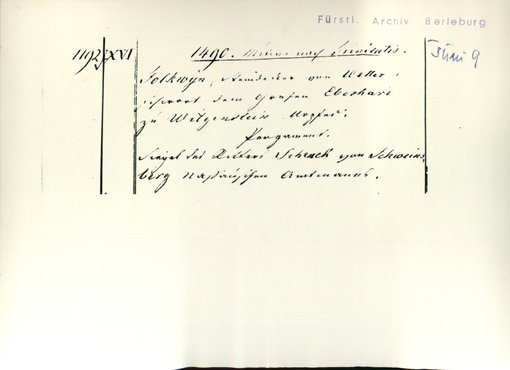 Fürstl. Archiv Berleburg
1192 XVI 1490. nach Trinitatis. Juni 9
Folkwyn, von Wetter,
dem Grafen Eberhard
zu Witgenstein Urfed.
Pergament.
Siegel des Ritters Schenck von Schweins
berg Amtmanns.